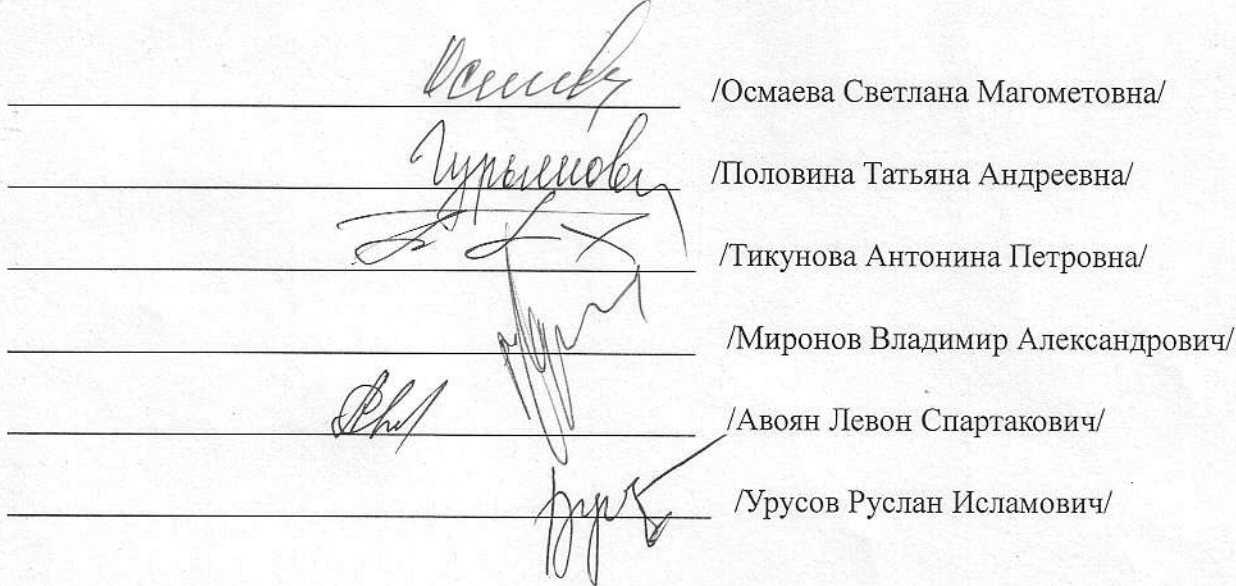 /Осмаева Светлана Магометовна/
Гурьянова /Половина Татьяна Андреевна/
/Тикунова Антонина Петровна/
/Миронов Владимир Александрович/
/Авоян Левон Спартакович/
/Урусов Руслан Исламович/